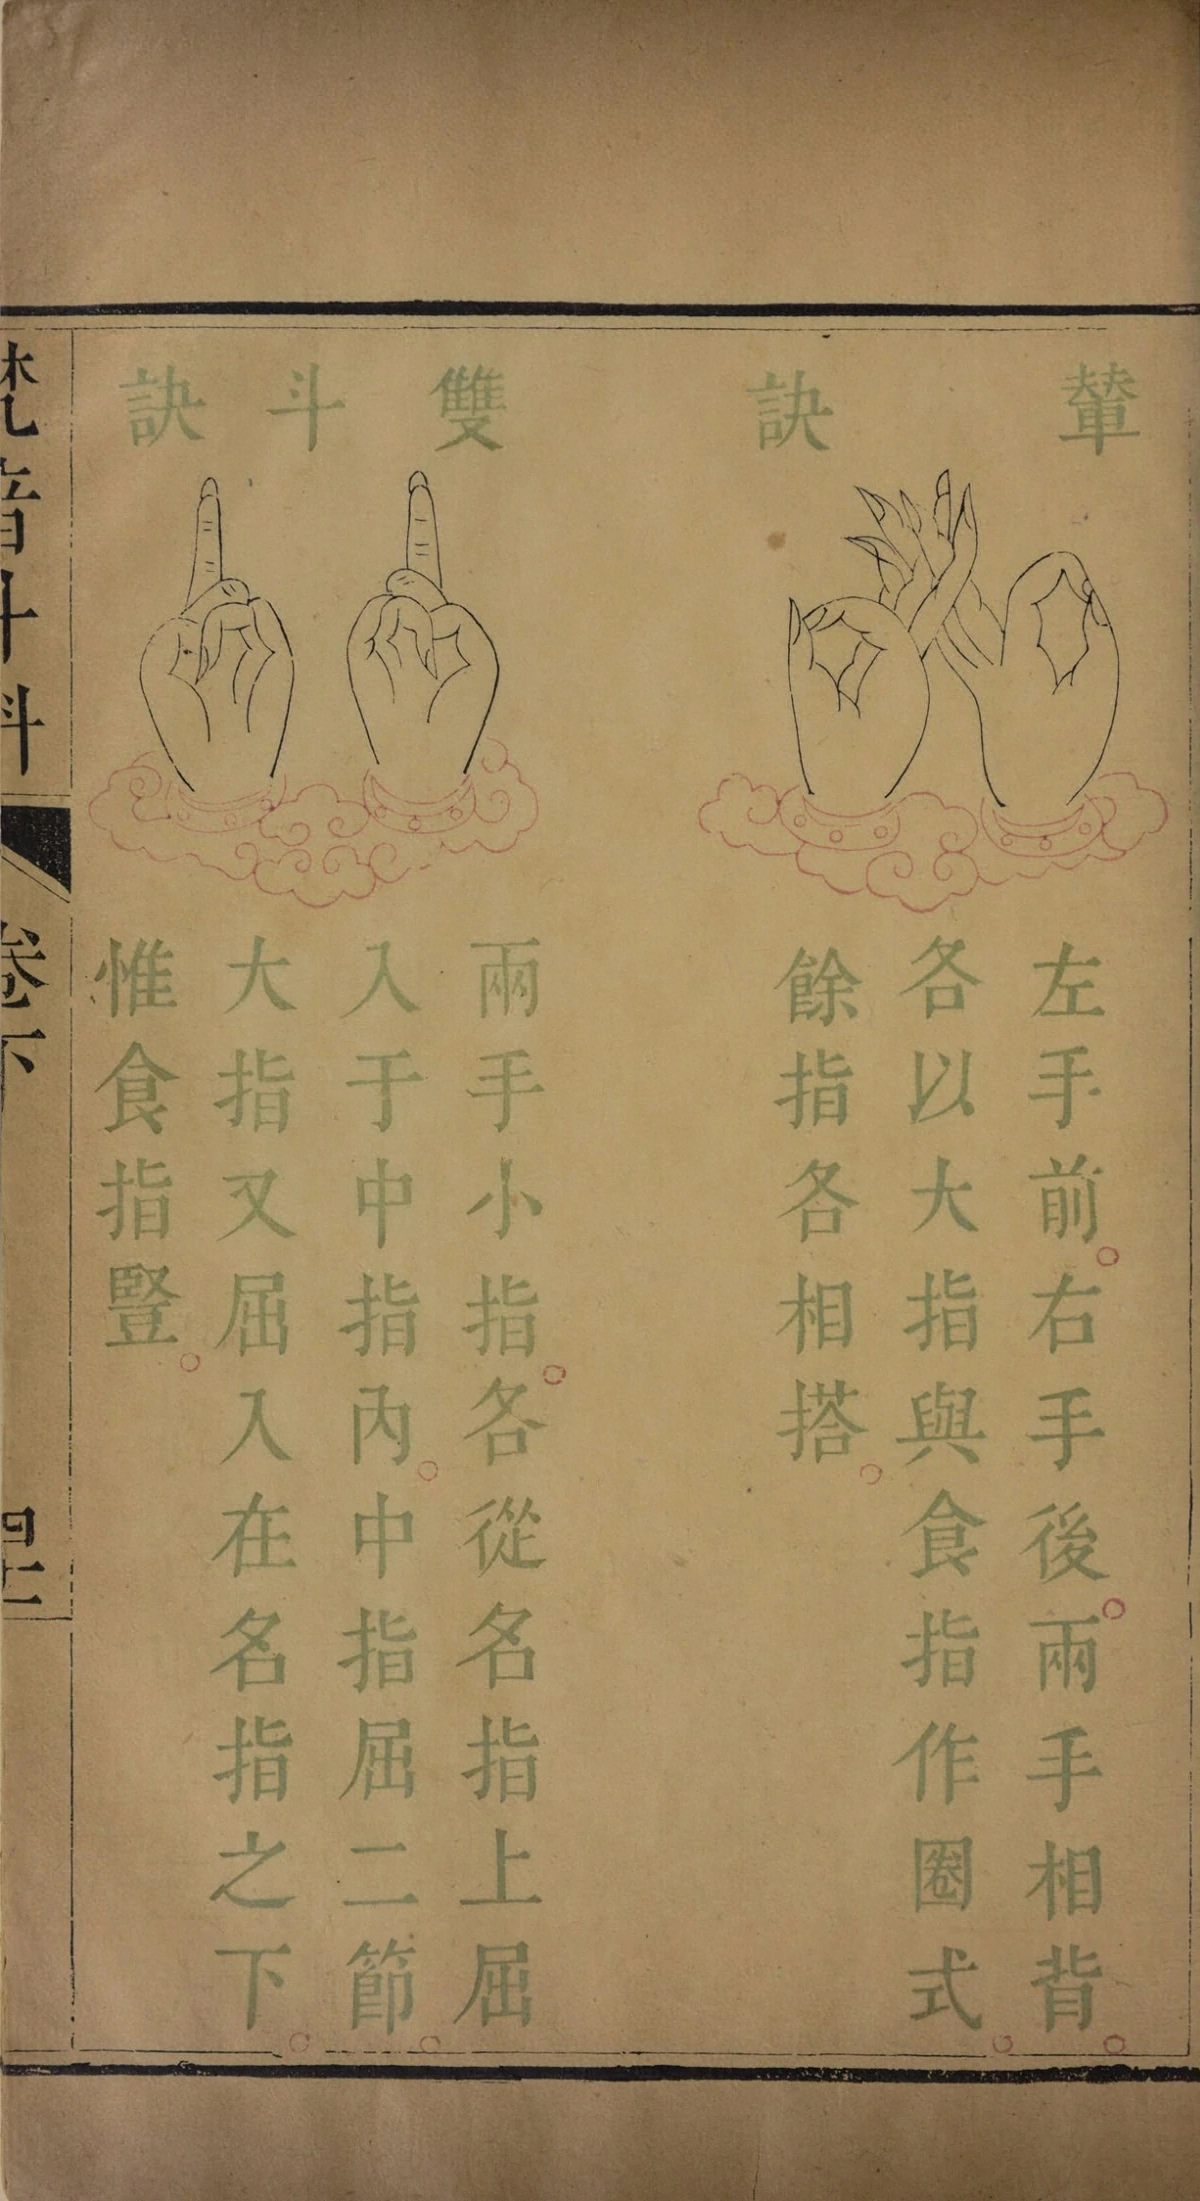 輦訣
左手前。右手後。兩手相背。
各以大指與食指作圈式。
餘指各相搭。
雙斗訣
兩手小指。各從名指上屈
入于中指內。中指屈二節。
大指又屈入在名指之下。
惟食指豎。
梵音斗科
卷下